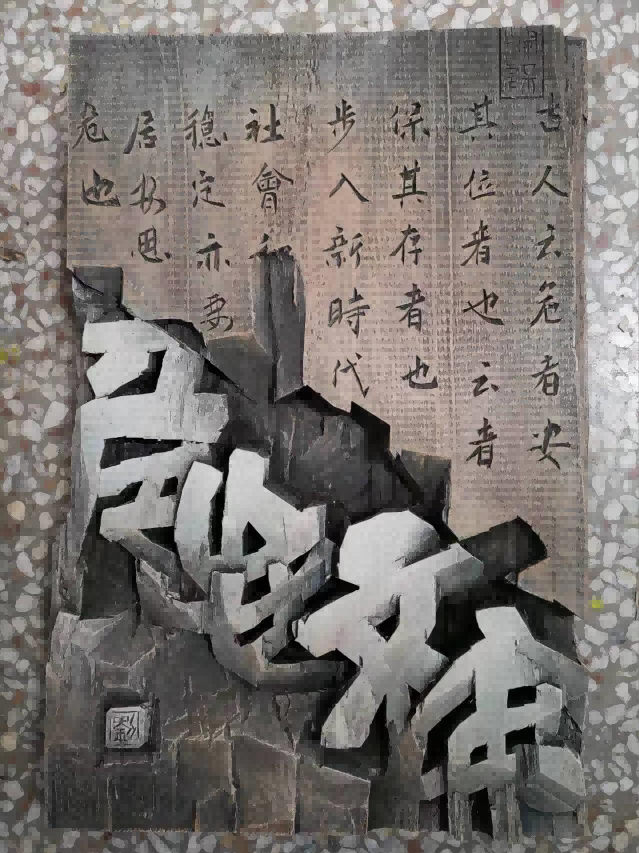 古人云危者安
其位者也云者
保其存者也
步入新時代
社會和
穩定亦要
居安思
危也
劉